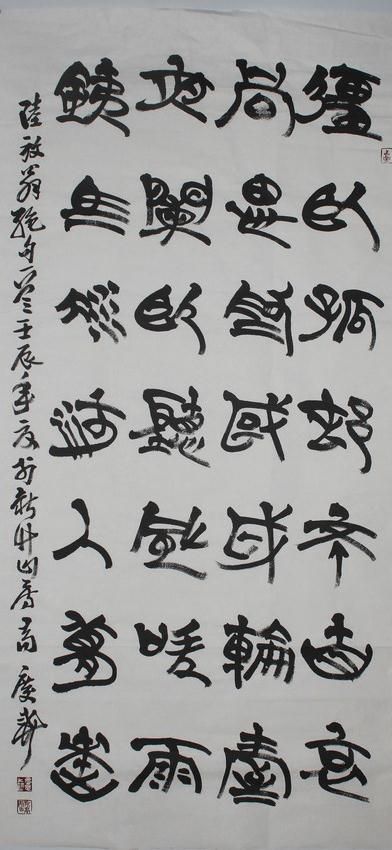 僵臥孤邨不自哀
尚思為國戍輪臺
夜闌臥聽風吹雨
鐵馬冰河入夢來
陸放翁絕句一首壬辰年夏於新竹山房高慶